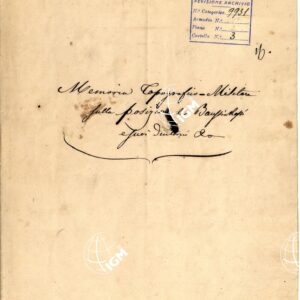 REVISIONE ARCHIVIO
N.º Categorico 9931
Armadio N.
Piano N.
Cartella N. 3
Memoria Topografico-Militare
sulla posizione di
e suoi dintorni
IGM
IGM
IGM